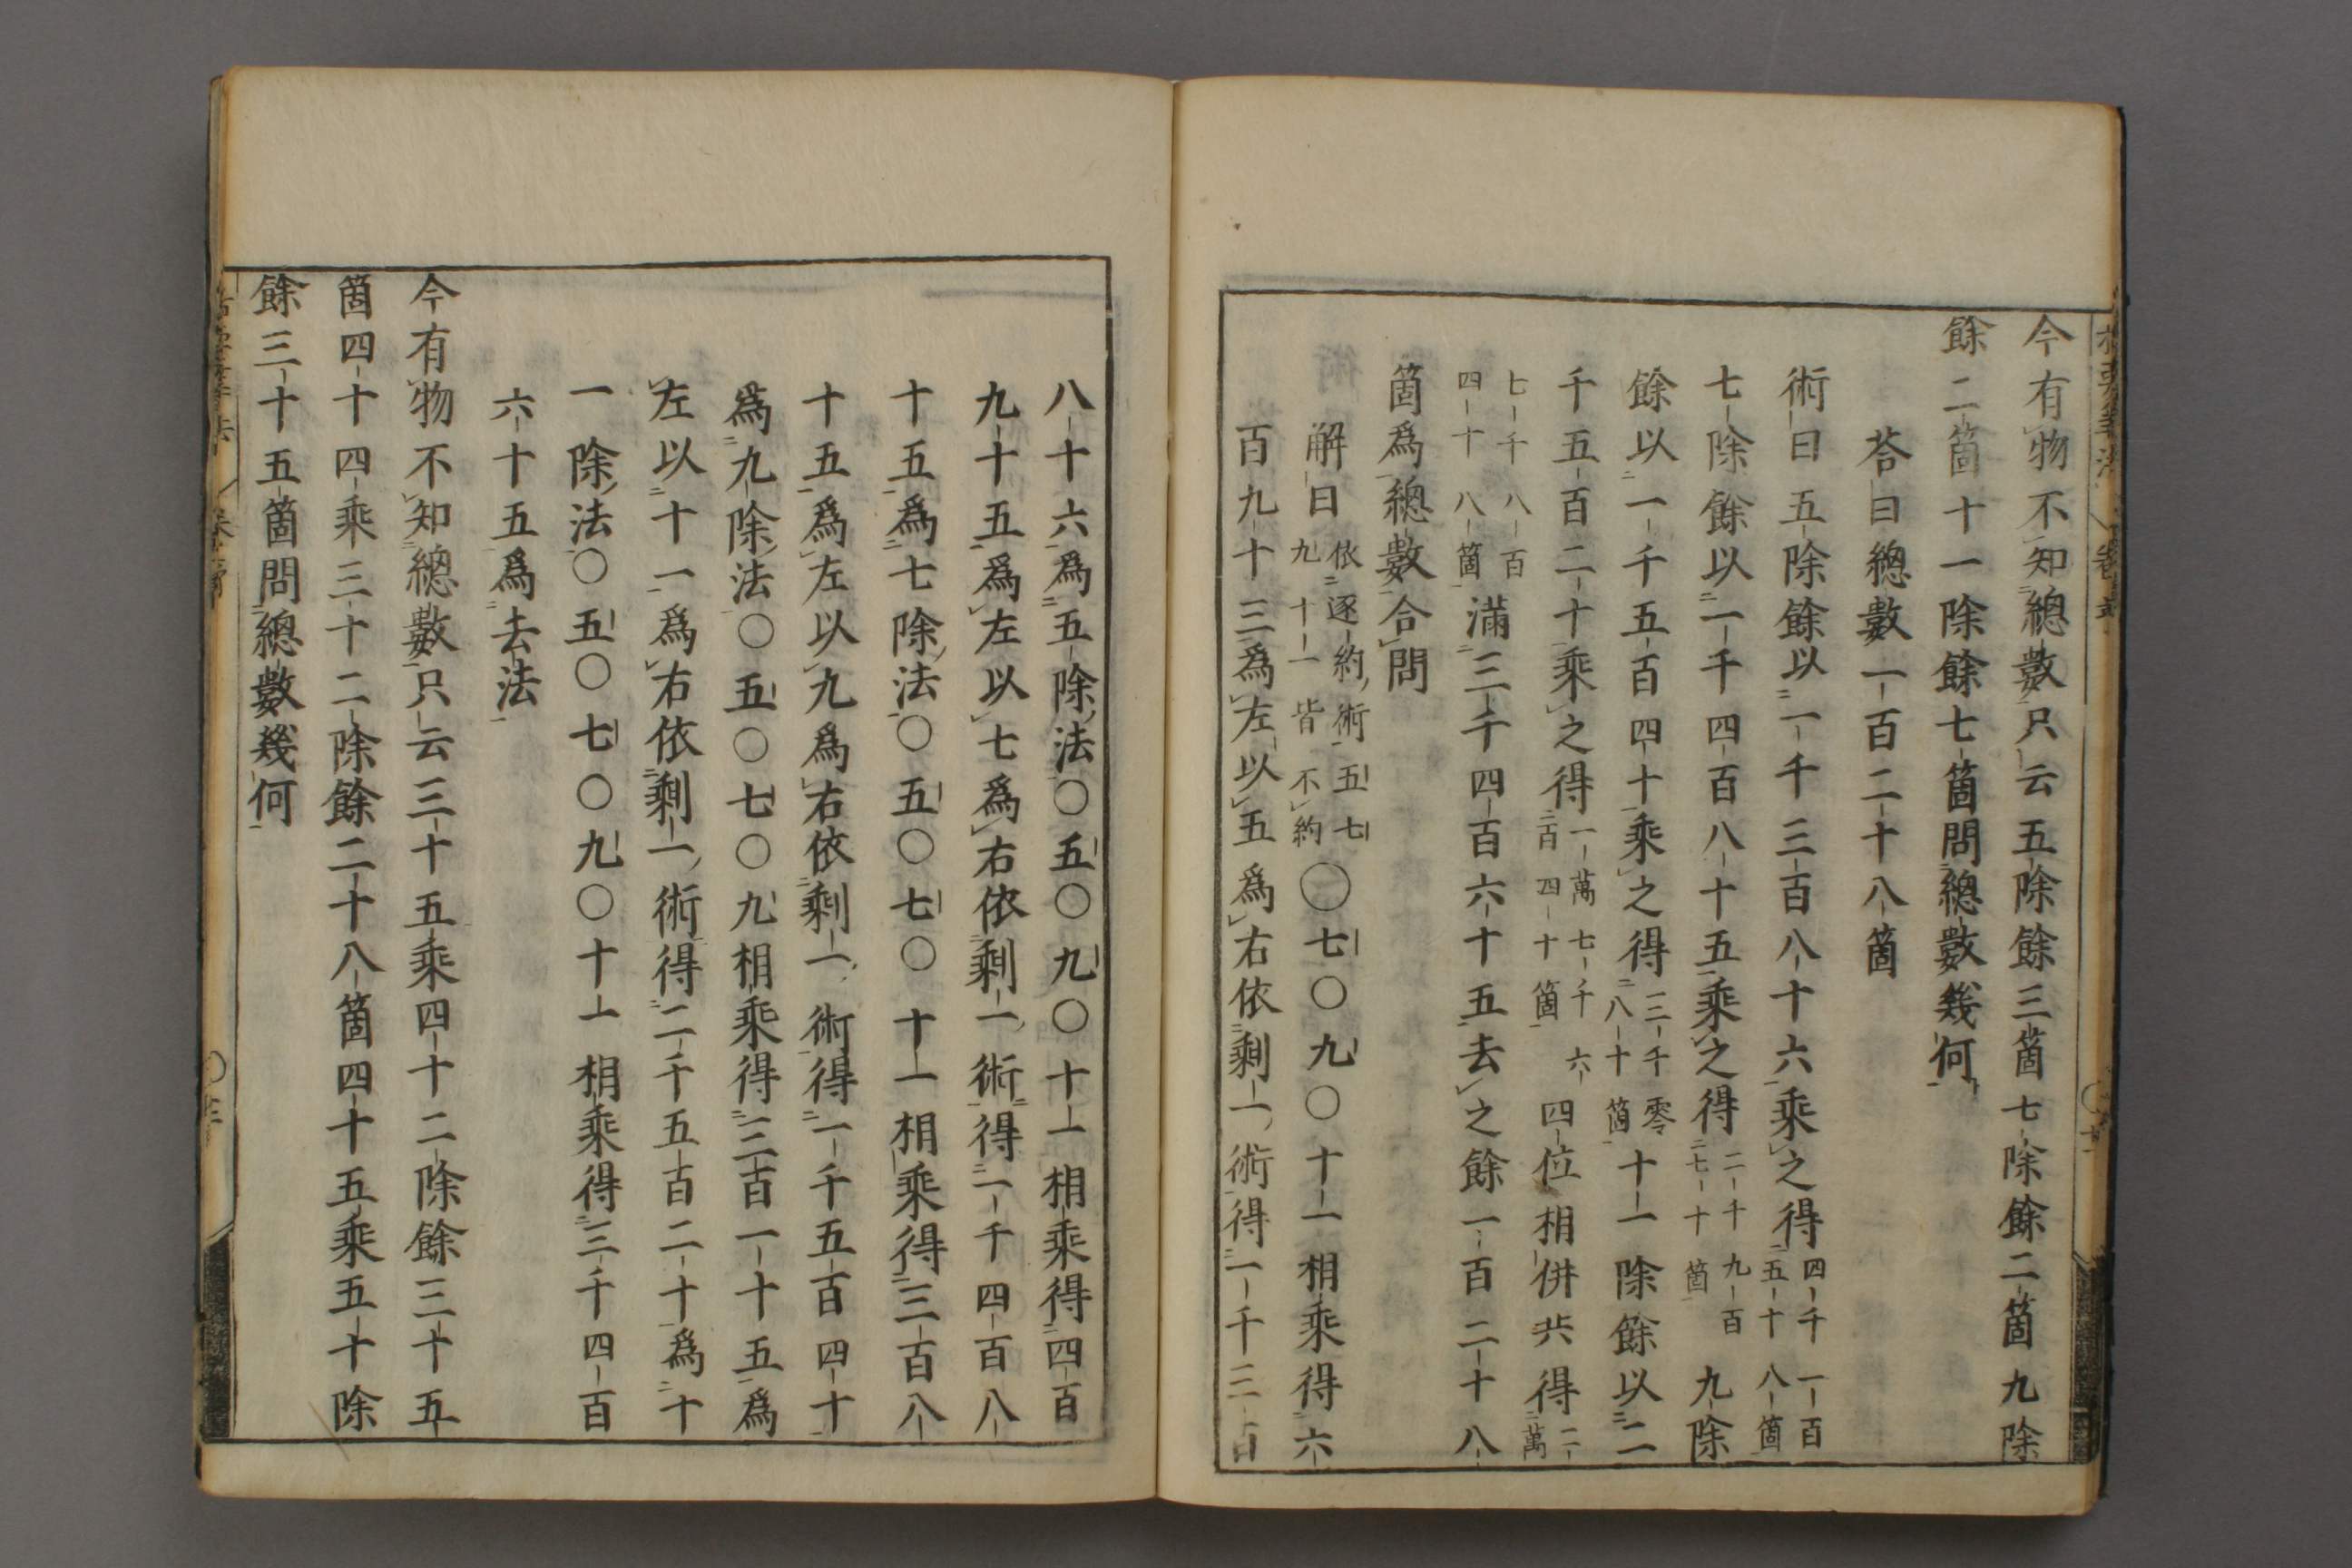 今有物不知總數只云五除餘三箇七除餘二箇九除
餘二箇十一除餘七箇問總數幾何
荅曰總數一百二十八箇
術曰五除餘以一千三百八十六乘之得四千一百五十八箇
七除餘以一千四百八十五乘之得二千九百七十箇九除
餘以一千五百四十乘之得三千零八十箇十一除餘以二
千五百二十乘之得一萬七千六百四十箇四位相併共得二萬
七千八百四十八箇滿三千四百六十五去之餘一百二十八
箇爲總數合問
解曰依逐約術五七九十一皆不約〇七〇九〇十一相乘得六
百九十三爲左以五爲右依剩一術得一千三百
八十六爲五除法〇五〇九〇十一相乘得四百
九十五爲左以七爲右依剩一術得一千四百八
十五爲七除法〇五〇七〇十一相乘得三百八
十五爲左以九爲右依剩一術得一千五百四十
爲九除法〇五〇七〇九相乘得三百一十五爲
左以十一爲右依剩一術得二千五百二十爲十
一除法〇五〇七〇九〇十一相乘得三千四百
六十五爲去法
今有物不知總數只云三十五乘四十二除餘三十五
箇四十四乘三十二除餘二十八箇四十五乘五十除
餘三十五箇問總數幾何